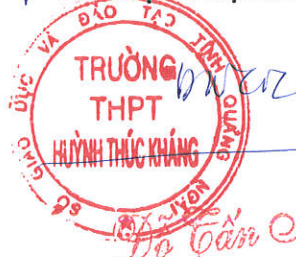 SỞ GIÁO DỤC VÀ ĐÀO TẠO TỈNH QUẢNG NGÃI
TRƯỜNG
THPT
HUỲNH THÚC KHÁNG
Đỗ Tấn